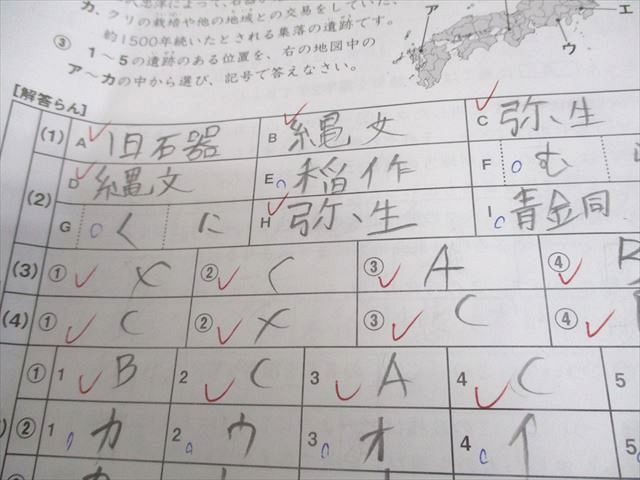 カ、クリの栽培や他の地域との交易をしていた、
約1500年続いたとされる集落の遺跡です。
③ 1～5の遺跡のある位置を、右の地図中の
ア～カの中から選び、記号で答えなさい。
ア
ウ
エ
[解答らん]
(1) A 旧石器 B 縄文 C 弥生
(2) D 縄文 E 稲作 F む
G くに H 弥生 I 青金同
(3) ① × ② C ③ A ④
(4) ① C ② × ③ C ④
① 1 B 2 C 3 A 4 C 5
② 1 カ 2 ウ 3 オ 4 イ 5